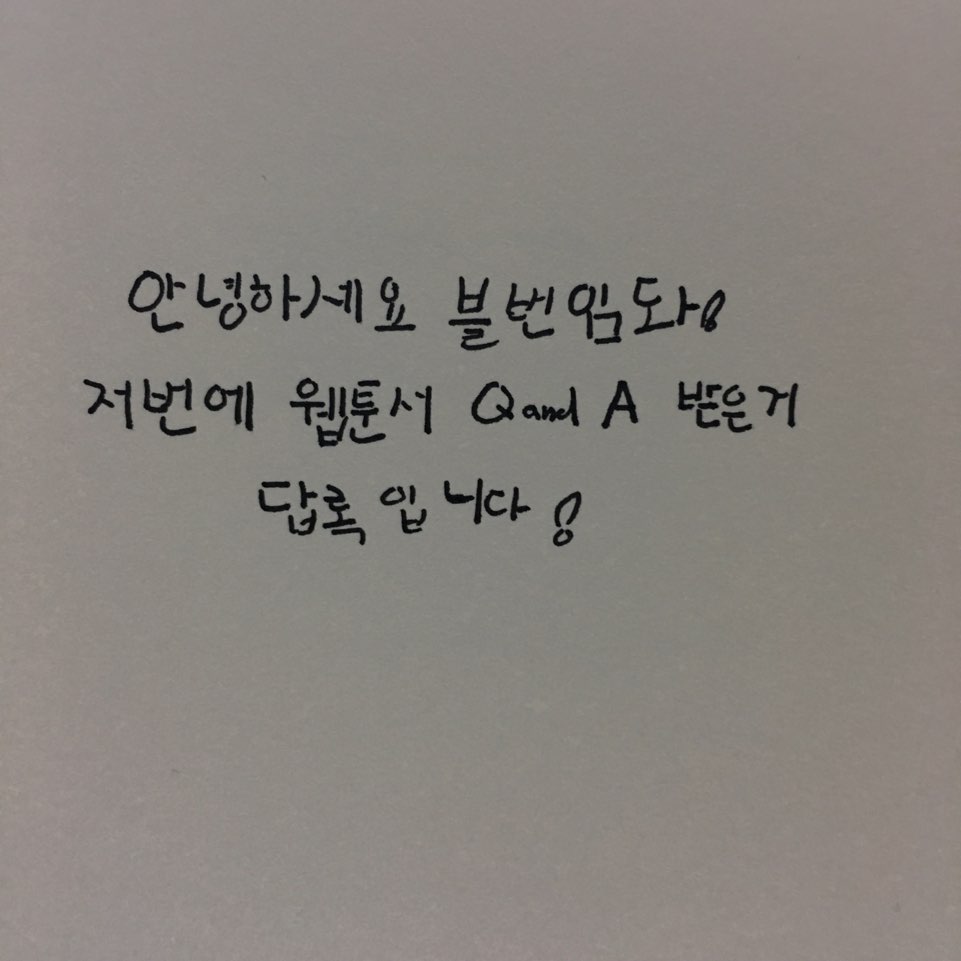 안녕하세요 블번임돠!
저번에 웹툰서 Q and A 받은거
답록입니다!